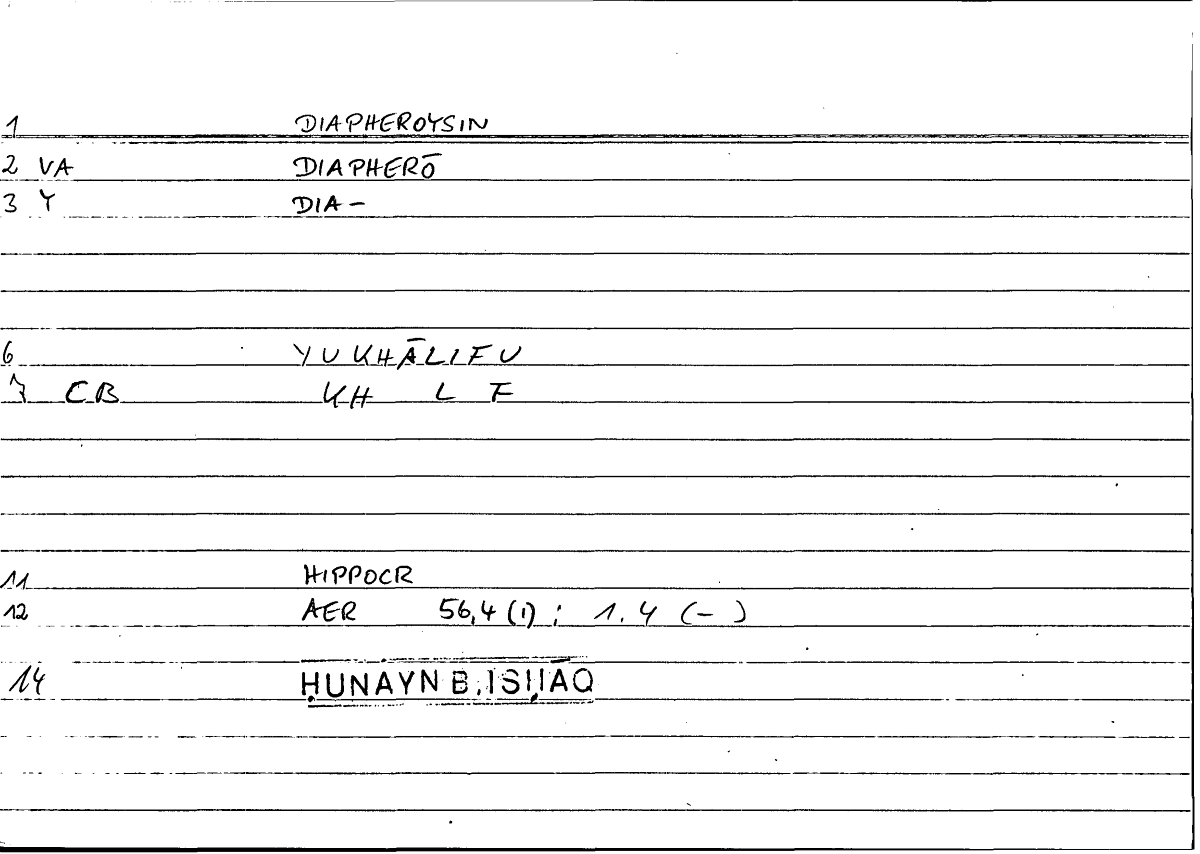 1 DIAPHEROYSIN
2 VA DIAPHERŌ
3 Y DIA-
6 YUKHĀLIFU
7 CB KH L F
11 HIPPOCR
12 AER 56,4 (1) ; 1.4 (-)
14 ḤUNAYN B. ISḤĀQ